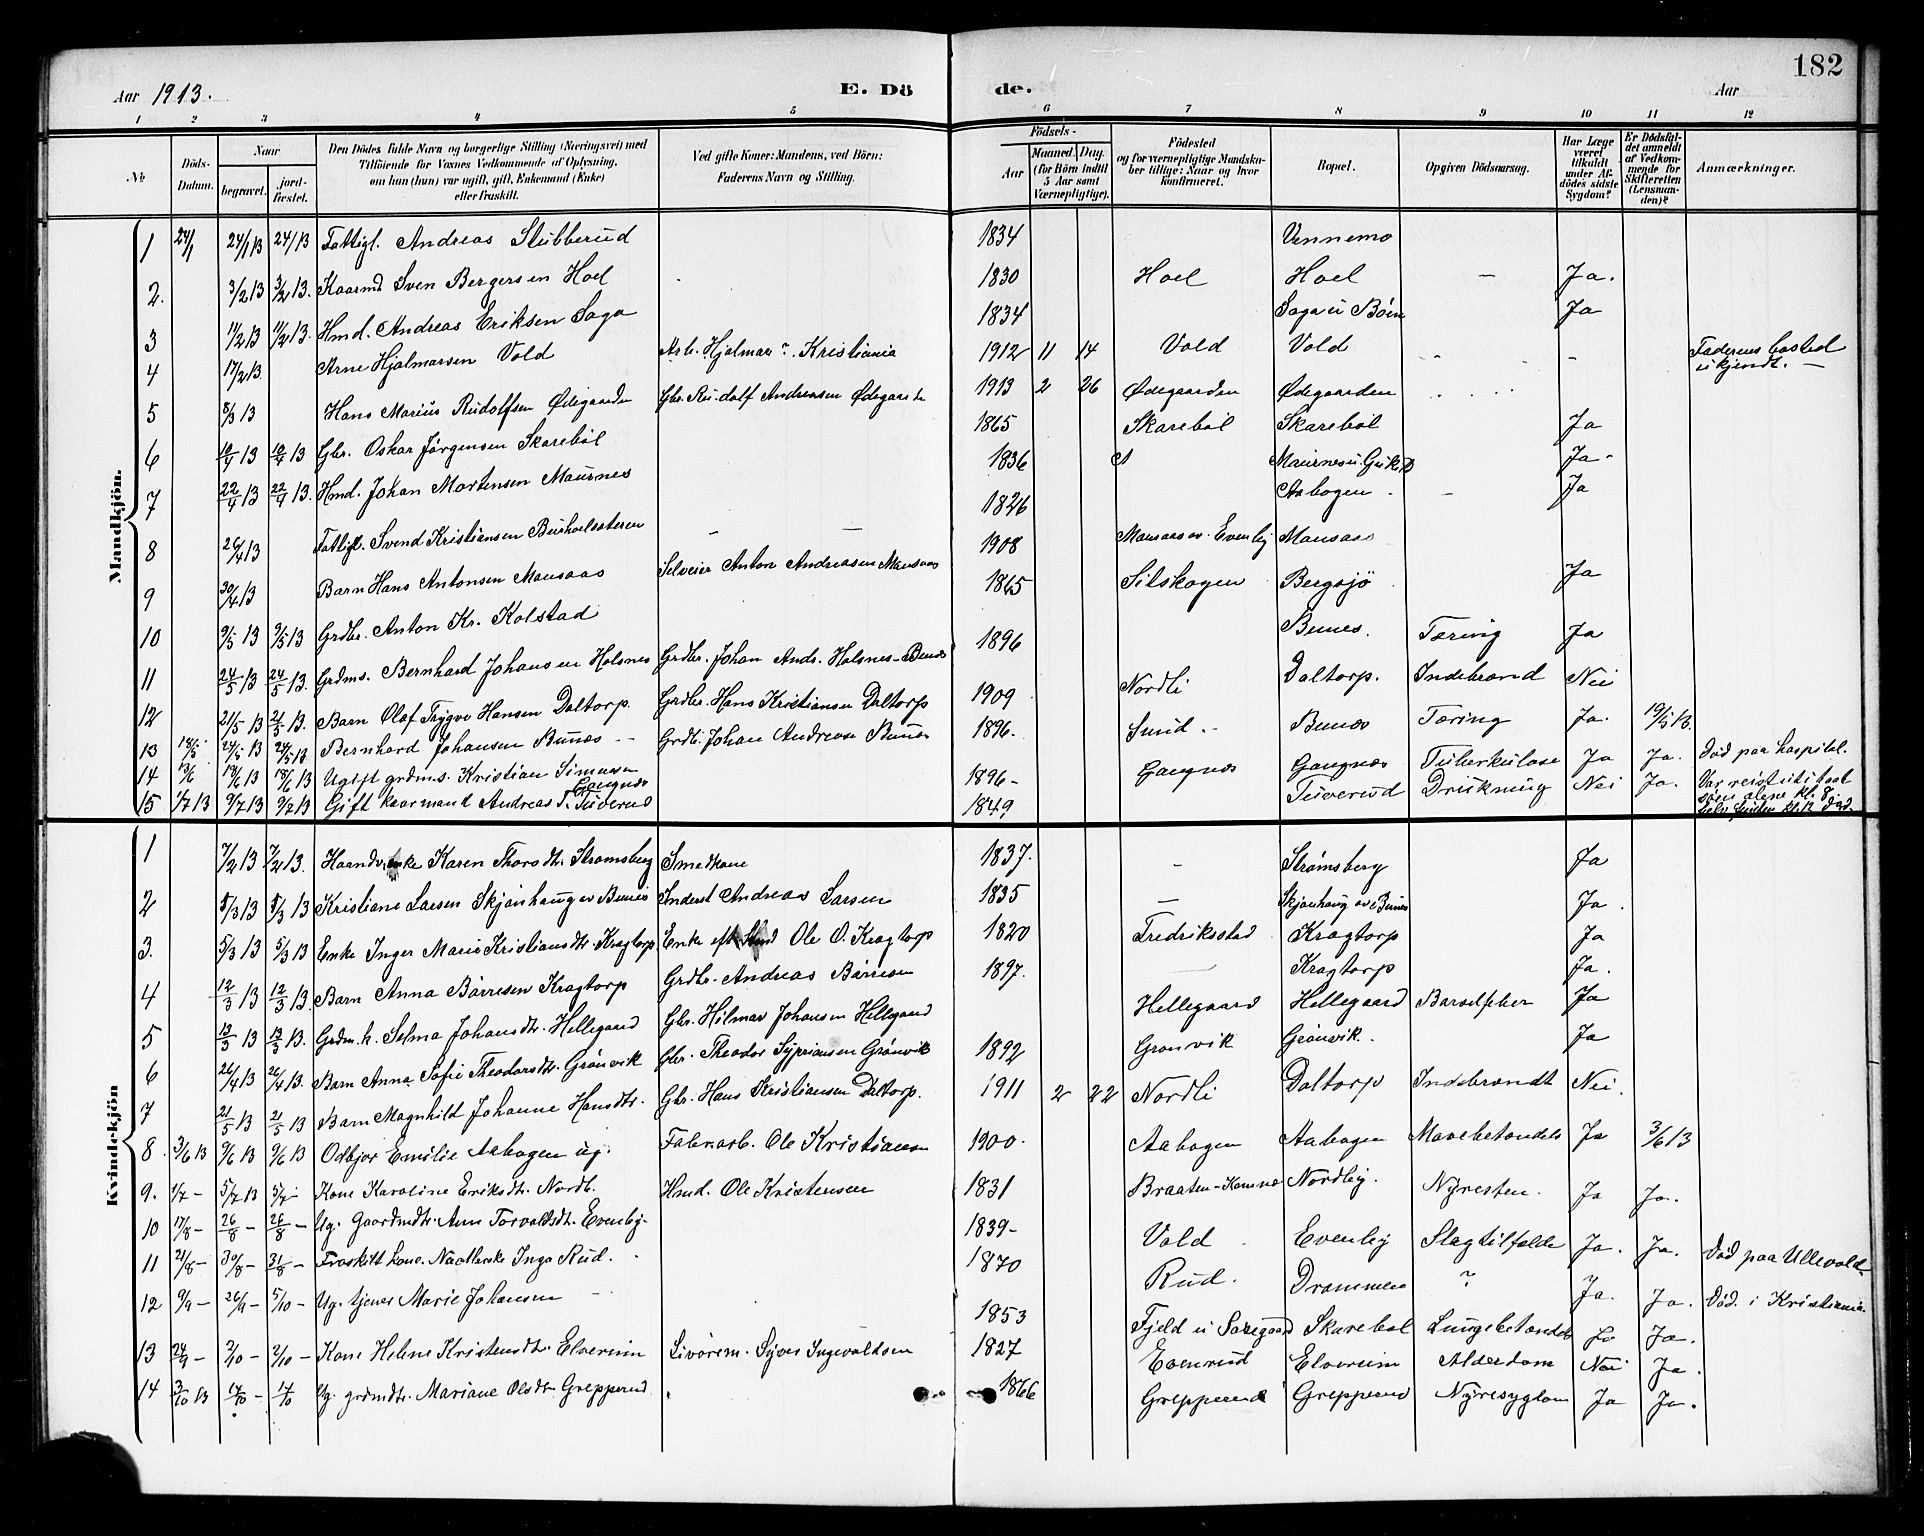 182
Aar 1913. E. Dö de. Aar
1 2 3 4 5 6 7 8 9 10 11 12
No Döds-Datum. Naar begravet. jordfæstet. Den Dödes fulde Navn og borgerlige Stilling (Næringsvei) med Tilföiende for Voxnes Vedkommende af Oplysning, om han (hun) var ugift, gift, Enkemand (Enke) eller fraskilt. Ved gifte Koner: Mandens, ved Börn: Faderens Navn og Stilling. Födsels- Aar Maaned. Dag. (for Börn indtil 5 Aar samt Værnepligtige). Födested og for værnepligtige Mandskaber tillige: Naar og hvor konfirmeret. Bopæl. Opgiven Dödsaarsag. Har Læge været tilkaldt under Afdödes sidste Sygdom? Er Dödsfaldet anmeldt af Vedkommende for Skifteretten (Lensmanden)? Anmærkninger.
Mandkjön.
1 24/1 24/1 13 24/ 13 Fattigl. Andreas Stubberud 1834 Vennemo
2. 3/2 13 3/2 13. Kaarmd Sven Bergersen Hoel 1830 Hoel Hoel — Ja.
3 11/2 13 11/2 13. Hmd. Andreas Eriksen Saga 1834 Saga u Böen Ja
4 17/2 13 Arne Hjalmarsen Vold Arb. Hjalmar ?. Kristiania 1912 11 14 Vold Vold Faderens bosted ukjendt. —
5 8/3 13 Hans Marius Rudolfsen Ødegaarden Gbr. Rudolf Andreasen Ødegaarden 1913 2 26 Ødegaarden Ødegaarden
6 10/4 13 10/4 13 Gbr. Oskar Jørgensen Skarebøl 1865 Skarebøl Skarebøl Ja
7 22/4 13 22/4 13. Hmd. Johan Mortensen Maurnes 1836 Ja
8 26/4 13 Fattigl. Svend Kristiansen — — 1826 Aabogen Ja
9 30/4 13 Barn Hans Antonsen Mansaas Selveier Anton Andreasen Mansaas 1908 Mansaas av. Evenby Mansaas
10 9/5 13 9/5 13 Grdbr. Anton Kr. Kolstad 1865 Setskogen Bergsjö Ja
11 24/5 13 24/5 13. Grdms. Bernhard Johansen Holsnes Grdbr. Johan Andr. Holsnes-Bunes 1896 Bunes. Tæring Ja
12 21/5 13 21/5 13. Barn Olaf Trygve Hansen Daltorp. Grdbr. Hans Kristiansen Daltorp 1909 Nordli Daltorp. Indebrand Nei
13 18/5 24/5 13 24/5 13 Bernhard Johansen Bunæs Grdb. Johan Andreas Bunæs 1896. Sund Bunæs Tæring Ja. 19/5 13.
14 13/6 18/6 13 18/6 13 Ugift grdms. Kristian Simensen Gangnæs 1896 - Gangnæs Gangnæs Tuberkulose Ja Ja. Död paa hospital.
15 1/7 13 9/7 13 9/7 13 Gift kaarmand Andreas T. Tuverud 1849 Tuverud Drukning Nei Ja. Var reist ut i baat
Kvindekjön
1 7/2 13 7/2 13. Haandv.enke Karen Thorsdtr. Strømsberg Smedkone 1837. — Strømsberg Ja
2 5/3 13 5/3 13 Kristiane Larsen Skjönhaug ev Bunes Inderst Andreas Larsen 1835 — Skjönhaug av Bunes Ja.
3. 5/3 13 5/3 13 Enke Inger Marie Kristiansdtr. Kragtorp Enke eft. Ole O. Kragtorp 1820 Fredriksstad Kragtorp Ja
4 12/3 13 12/3 13. Barn Anna Börresen Kragtorp Grdbr. Andreas Börresen 1897. — Kragtorp Ja.
5 13/3 13 13/3 13. Grdm.k. Selma Johansdtr. Hellegaard Gbr. Hilmar Johansen Hellegaard Hellegaard Hellegaard Barselfeber Ja
6 26/4 13 26/4 13. Barn Anna Sofie Theodorsdtr. Grønvik Gbr. Theodor Sypriansen Grønvik 1892 Grønvik Grønvik. Ja
7 21/5 13 21/5 13 Barn Magnhild Johanne Hansdtr. Gbr. Hans Kristiansen Daltorp. 1911 2 22 Nordli Daltorp Indebrændt Nei.
8. 3/6 13 9/6 13 9/6 13 Odbjor Emilie Aabogen ug. Fabr.arb. Ole Kristiansen 1900. Aabogen Aabogen Mavebetændels Ja 3/6 13
9. 1/7 - 5/7 13 5/7 - Kone Karoline Eriksdtr. Nordb. Hmd. Ole Kristensen 1831 Nordby. Nyresten. Ja Ja.
10 17/8 - 26/8 - 26/8 - Ug. Gaardmdtr. Anne Torvaldsdtr. Evenby 1839 - Vold Evenby Slagtilfælde Ja. Ja.
11 21/8 - 30/8 - 31/8 - Fraskilt kone Inga Rud. 1870 Rud. Drammen ? Ja. Död paa Ullevold.
12 9/9 - 26/9 - 5/10 - Ug. tjener Marie Johansen Ja. Död. i Kristiania
13 24/9 - 2/10 - 2/10 - Kone Helene Kristensdtr. Elverum Livörem. Syver Ingevaldsen 1853 Fjeld u Skarebøl Lungebetændels Ja Ja.
1827 Evenrud Elverum Alderdom Nei Ja.
14 3/10 13 14/10 - 14/10 Ug. grdmdtr. Mariane Olsdtr. Grepperud 1866 Grepperud Grepperud Nyresygdom Ja Ja.